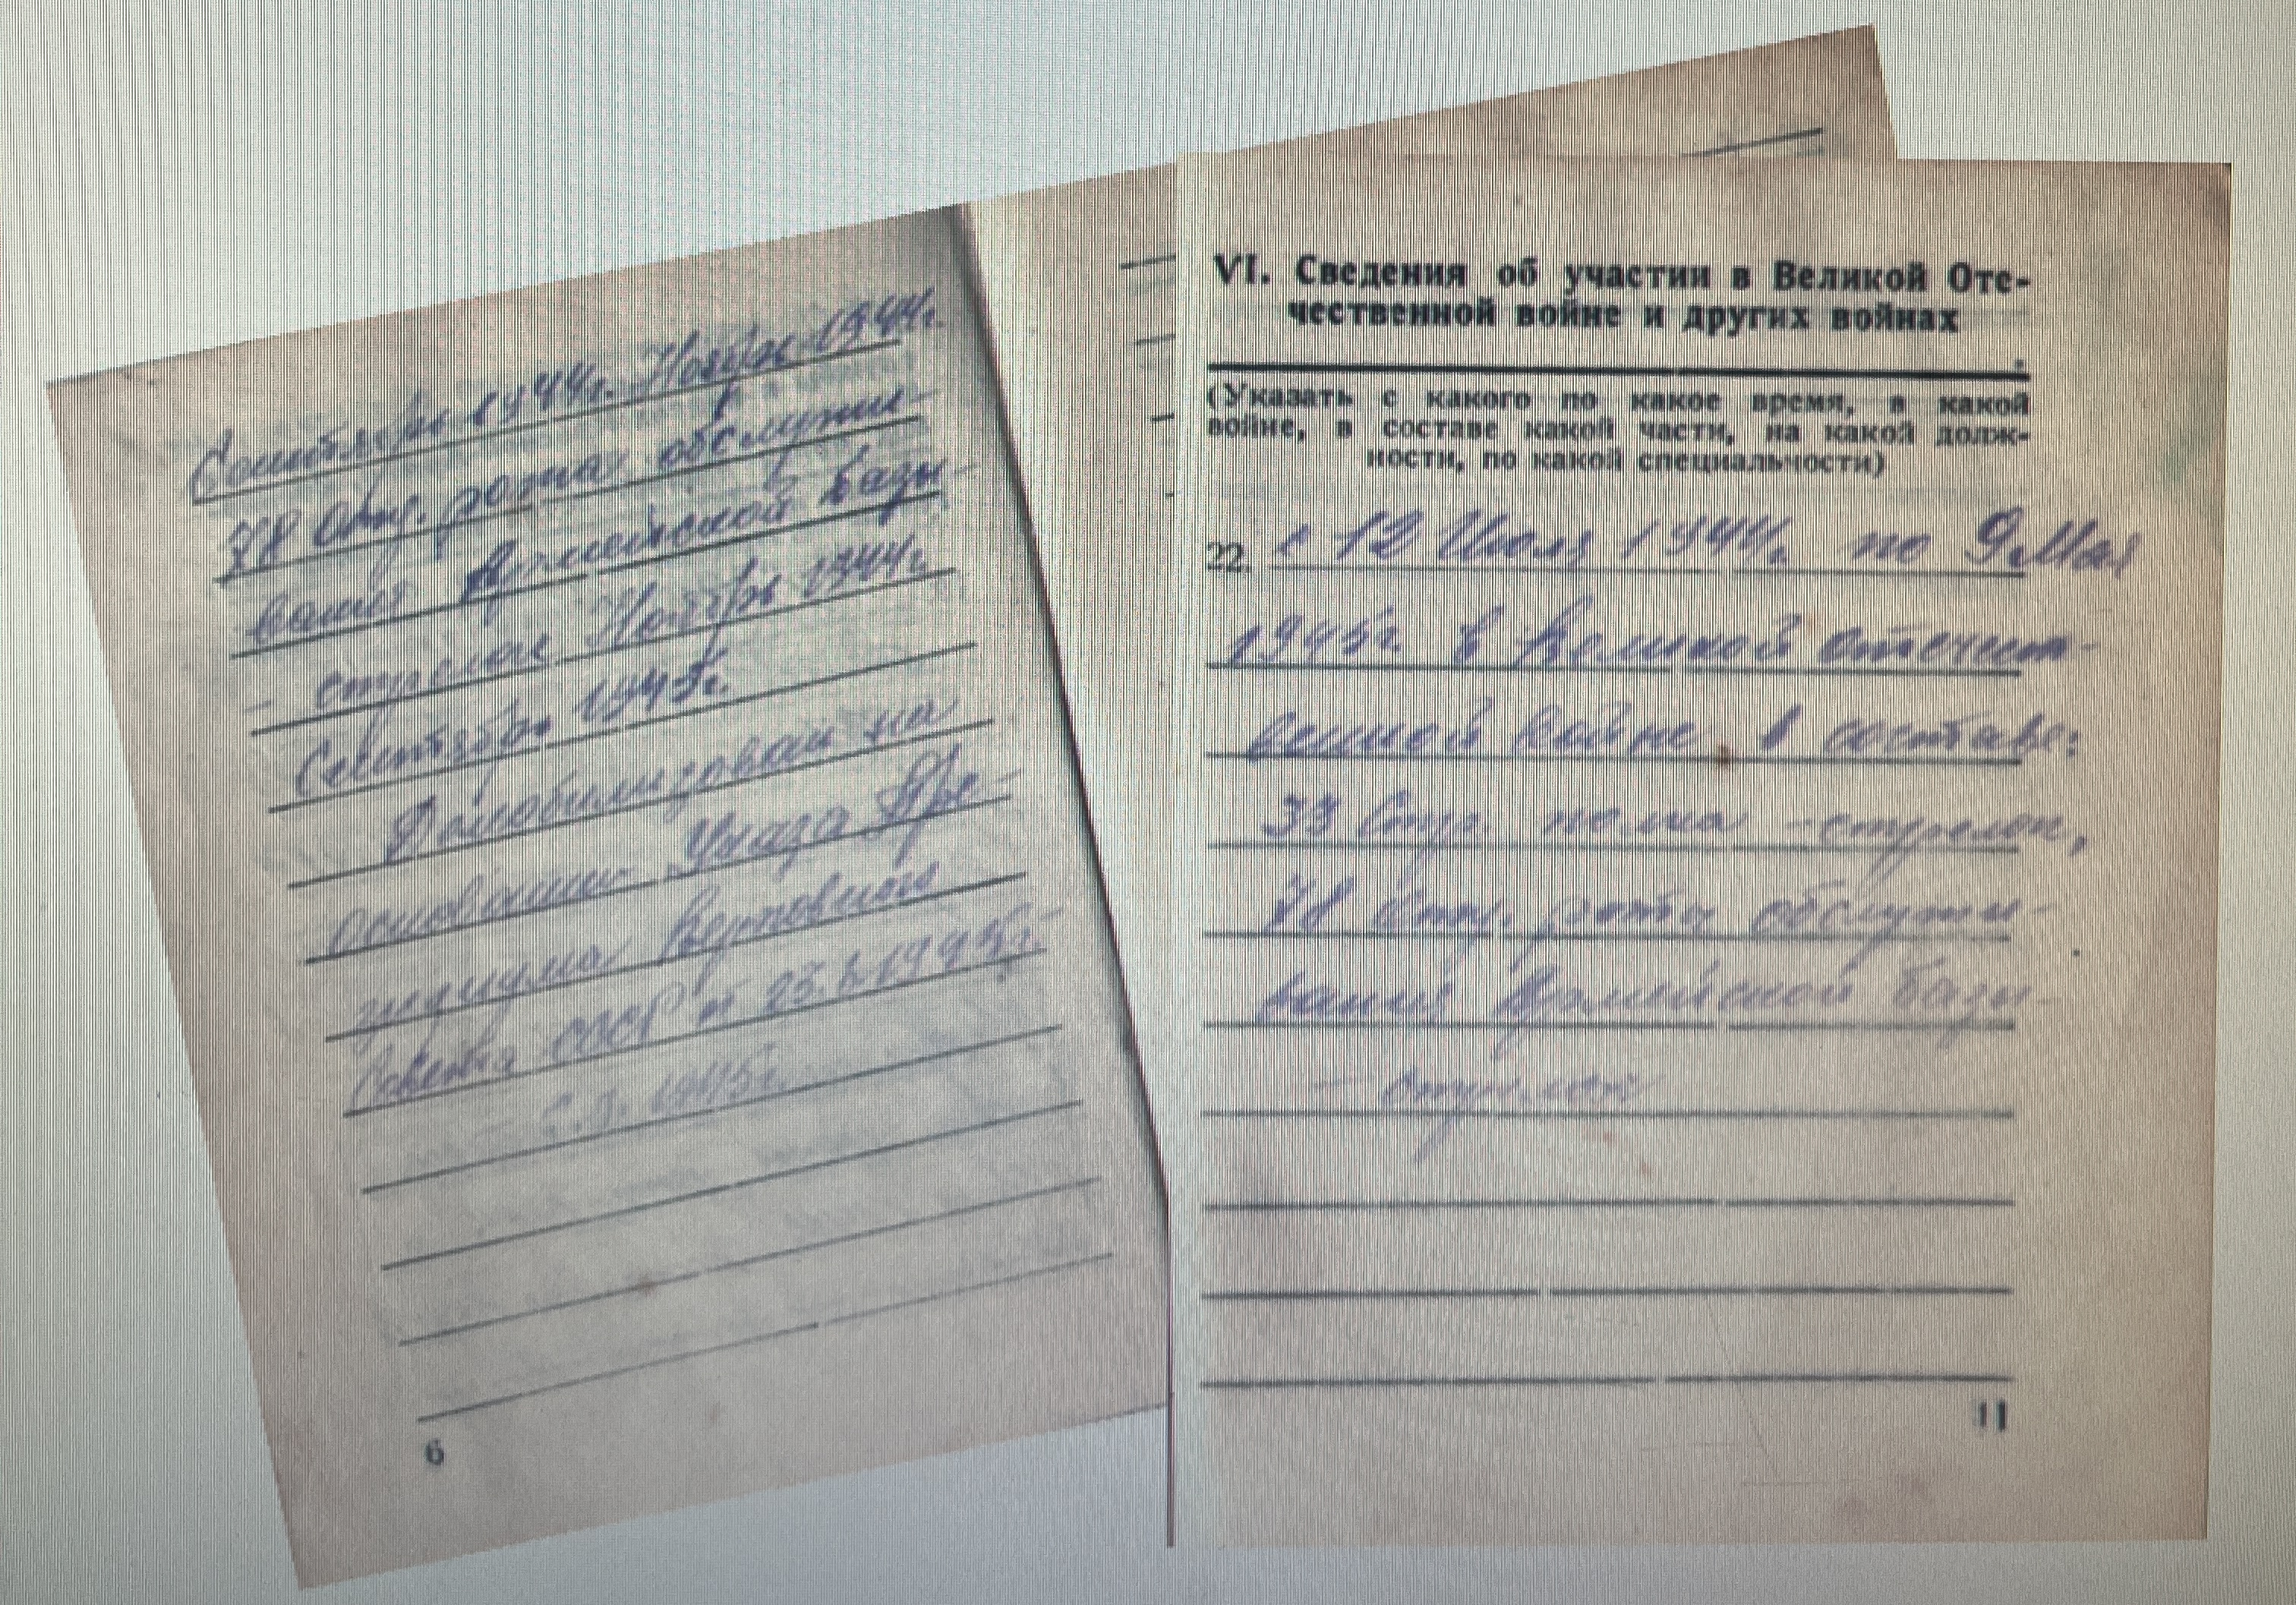 Сентябрь 1944г. Ноябрь 1944г.
78 Отд. рота обслужи-
вания Армейской базы
- стрелок Ноябрь 1944г.
Сентябрь 1945г.
Демобилизован на
основании Указа Пре-
зидиума Верховного
Совета СССР от 25. 1945г.
1945г.
6
VI. Сведения об участии в Великой Оте-
чественной войне и других войнах
(Указать с какого по какое время, в какой
войне, в составе какой части, на какой долж-
ности, по какой специальности)
22. с 12 Июля 1944г. по 9 Мая
1945г. в Великой отечест-
венной войне в составе:
33 Стр. полка - стрелок,
78 Отд. рота обслужи-
вания Армейской базы-
- стрелок
11